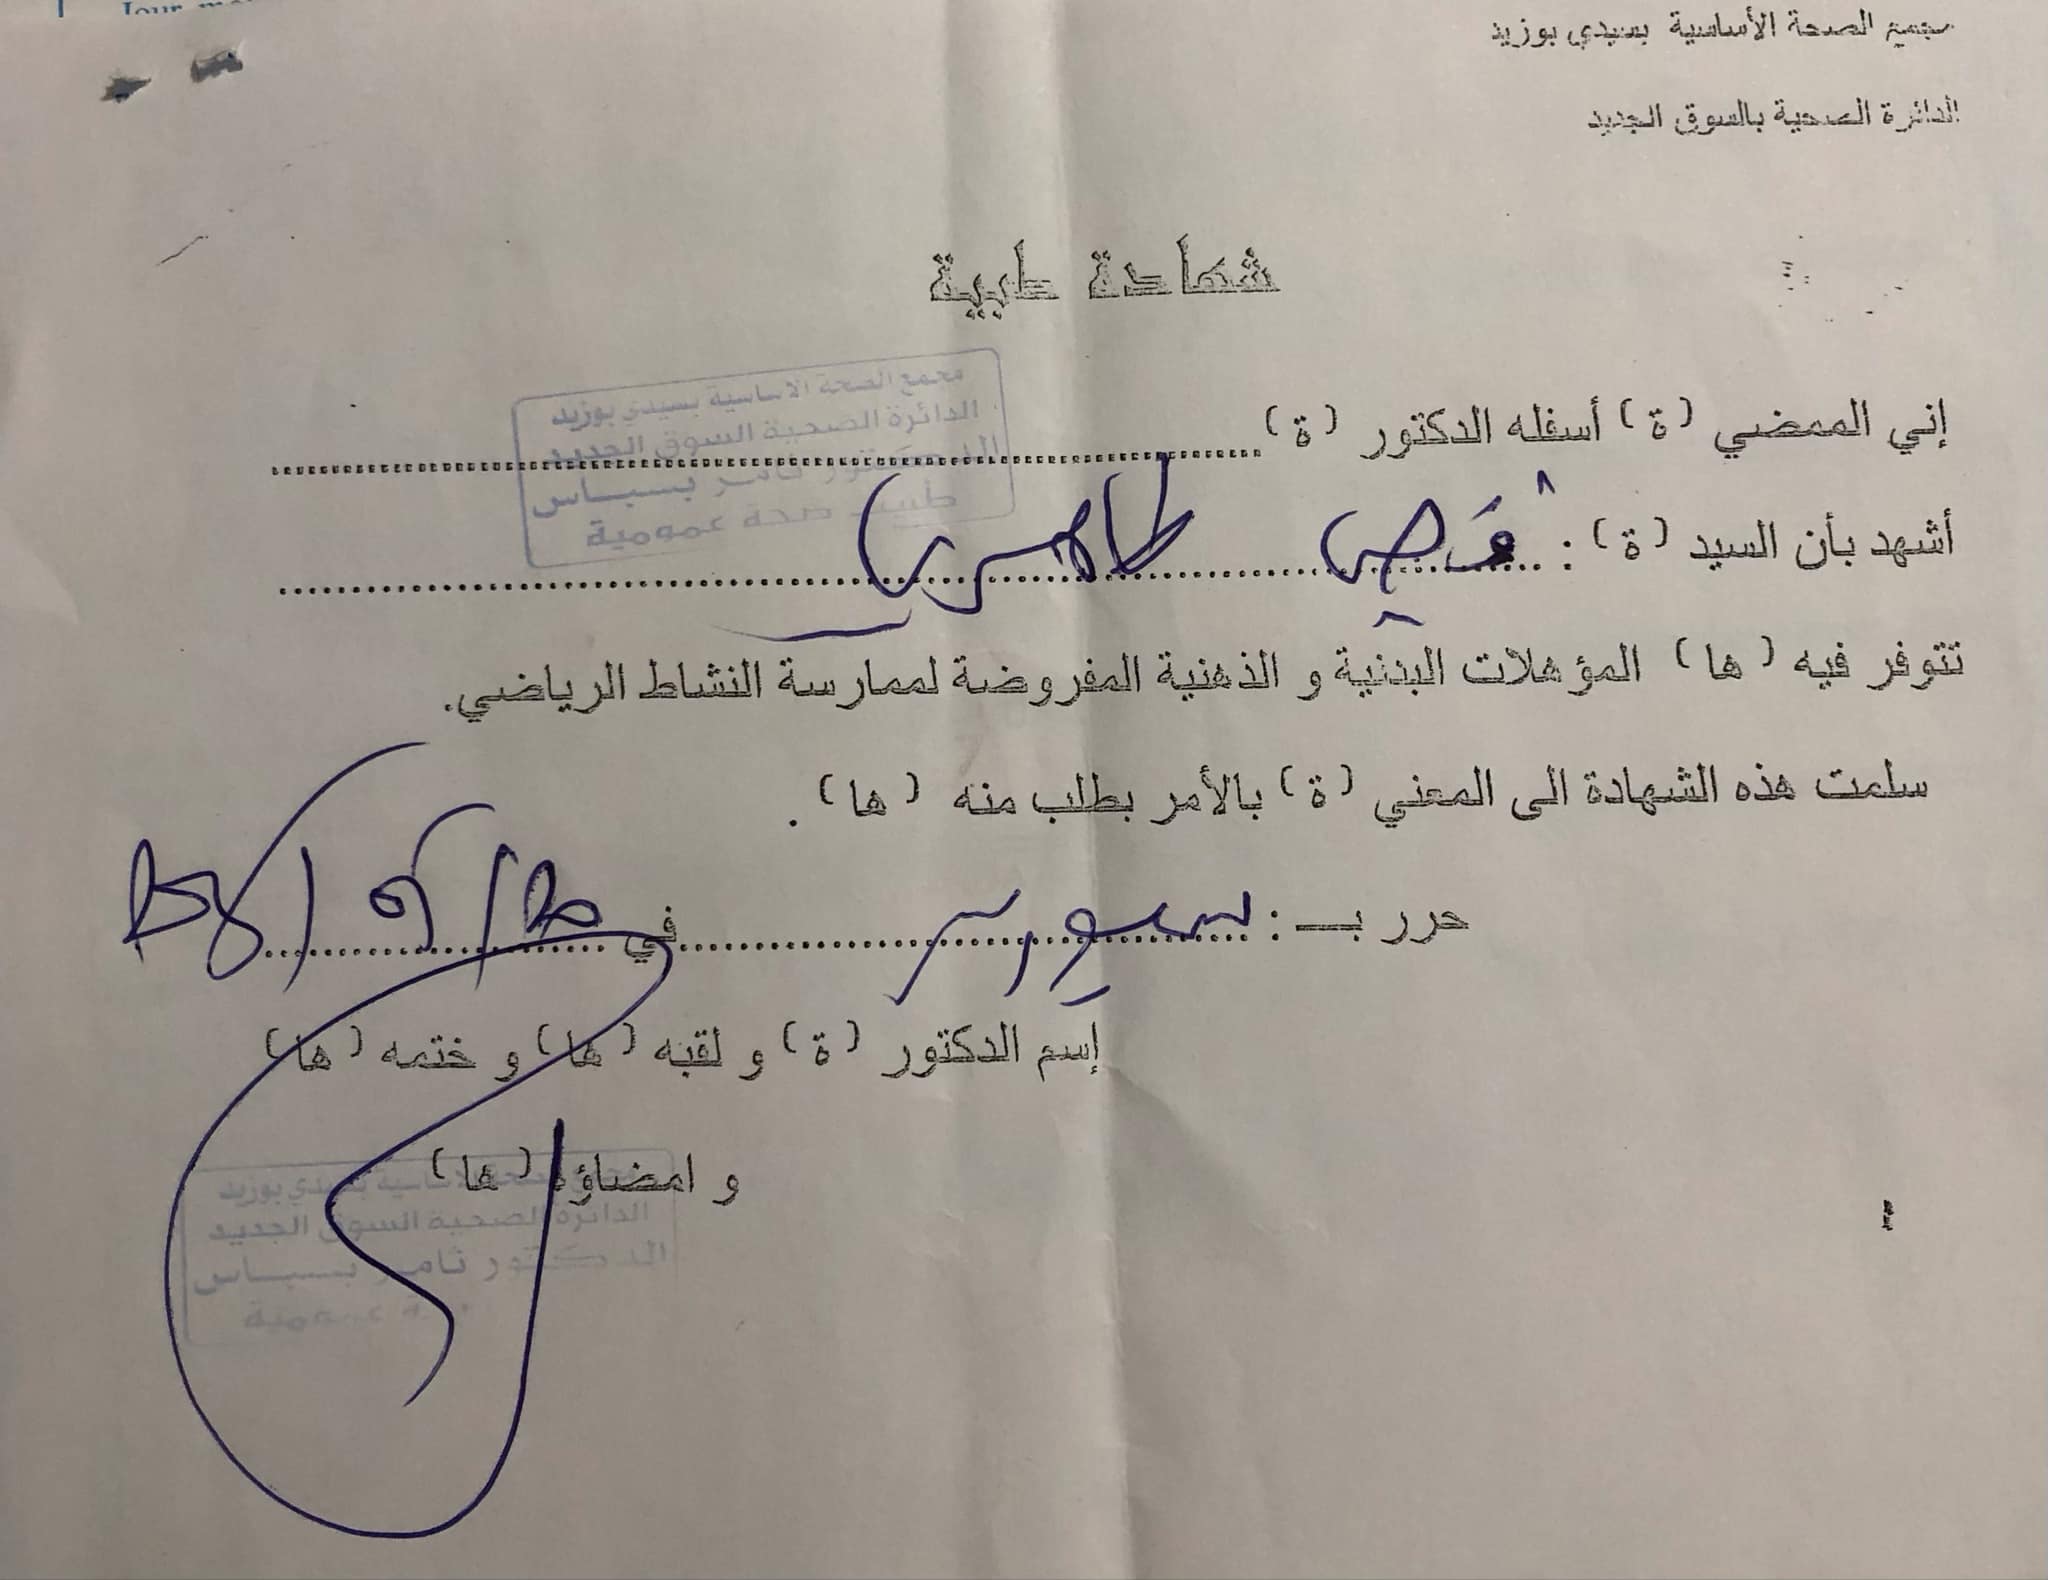 Jour
مجمع الصحة الأساسية بسيدي بوزيد
الدائرة الصحية بالسوق الجديد
شهادة طبية
مجمع الصحة الاساسية بسيدي بوزيد
الدائرة الصحية السوق الجديد
الدكتور ثامر بسباس
طبيب صحة عمومية
إني الممضي (ة) أسفله الدكتور (ة)
أشهد بأن السيد (ة) :
تتوفر فيه (ها) المؤهلات البدنية و الذهنية المفروضة لممارسة النشاط الرياضي.
سلمت هذه الشهادة الى المعني (ة) بالأمر بطلب منه (ها).
حرر بـ : في
إسم الدكتور (ة) و لقبه (ها) و ختمه (ها)
و امضاؤه (ها)
الاساسية بسيدي بوزيد
الدائرة الصحية السوق الجديد
الدكتور ثامر بسباس
عمومية